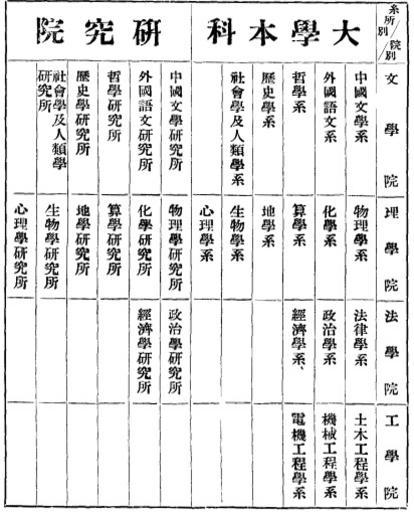 系所別/院別
大學本科
研究院
文學院
中國文學系
外國語文系
哲學系
歷史學系
社會學及人類學系
中國文學研究所
外國語文研究所
哲學研究所
歷史學研究所
社會學及人類學研究所
理學院
物理學系
化學系
算學系
地學系
生物學系
心理學系
物理學研究所
化學研究所
算學研究所
地學研究所
生物學研究所
心理學研究所
法學院
法律學系
政治學系
經濟學系、
政治學研究所
經濟學研究所
工學院
土木工程學系
機械工程學系
電機工程學系